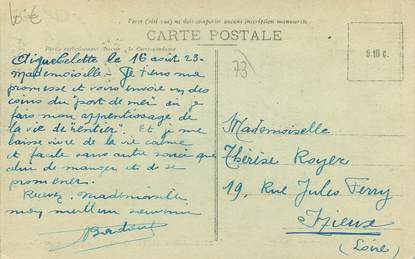 10€
Verso (ait-vue) ne doit comporter aucune inscription manuscrite
CARTE POSTALE
Partie exclusivement réservée à la Correspondance
73
0.10 c.
Aiguebelette le 16 août 23-
Mademoiselle - Je tiens ma
promesse et vous envoie un des
coins du port de mer où je
fais mon apprentissage de
la vie de "rentier". Et je me
laisse vivre de la vie calme
et facile sans autre souci que
celui de manger et de se
promener.
Recevez, Mademoiselle
mon meilleur souvenir
Mademoiselle
Thérèse Royer
19, Rue Jules Ferry
Izieux
(Loire)